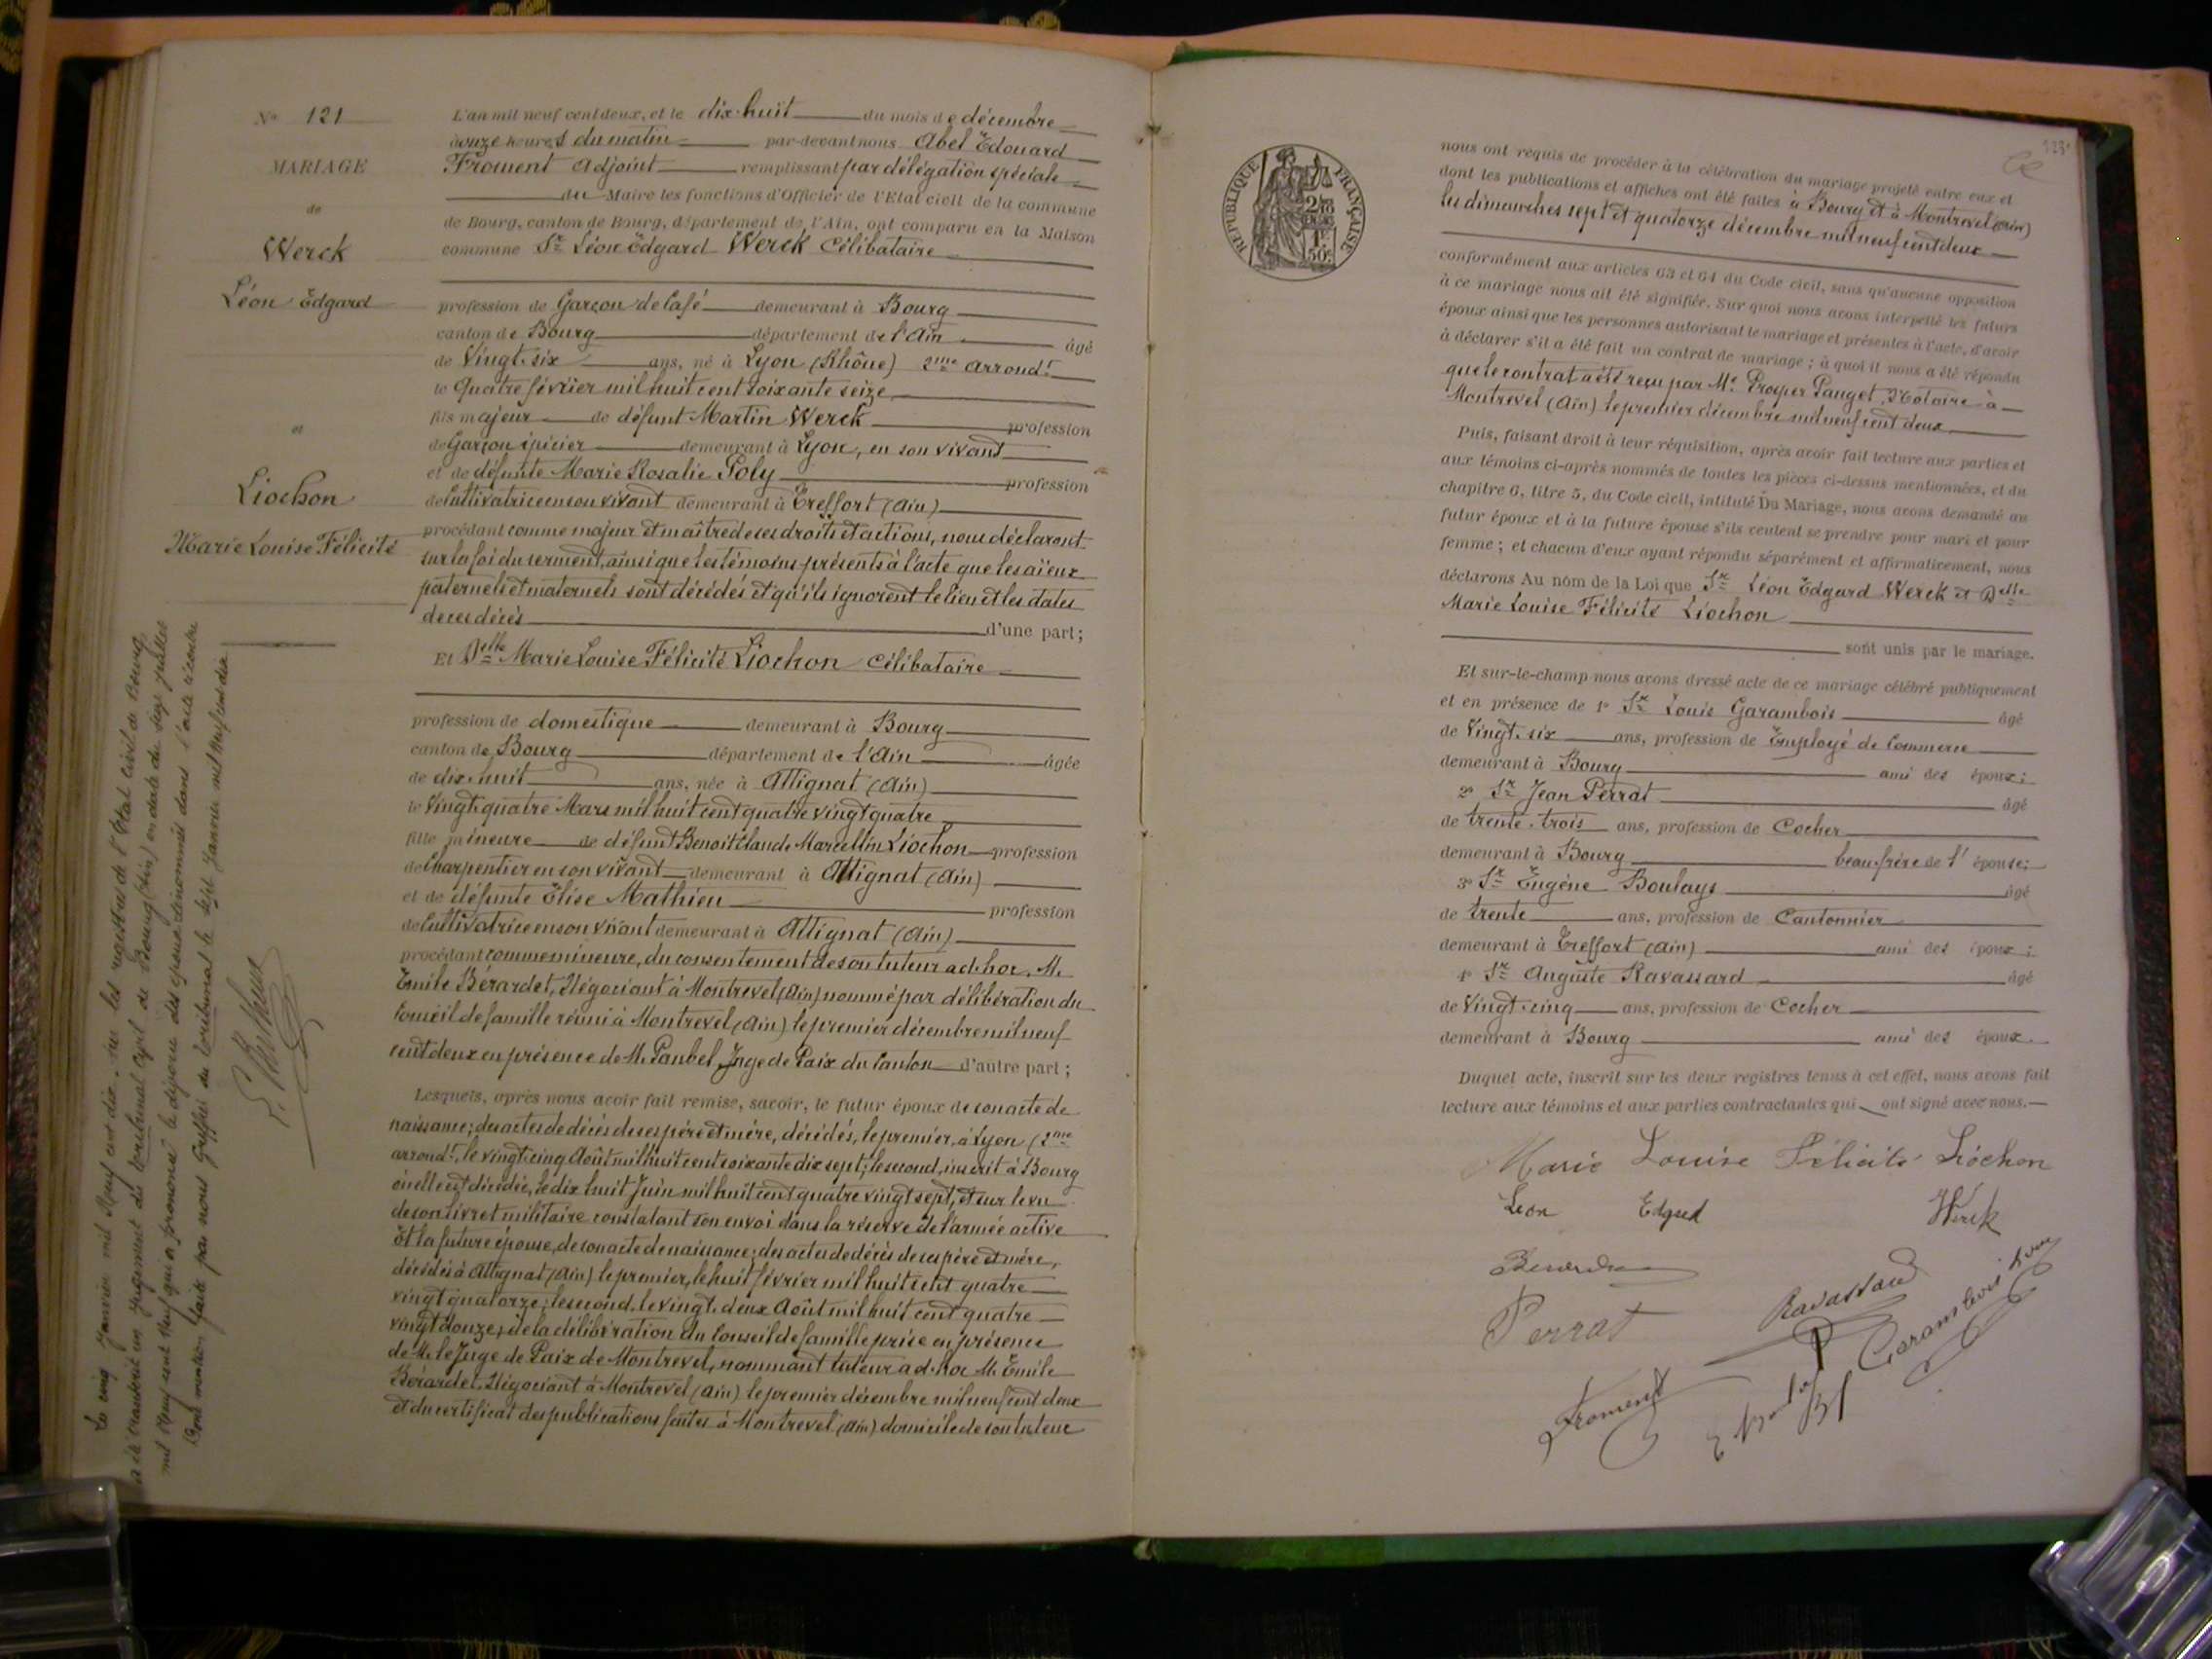 No 121
MARIAGE
de
Werck
Léon Edgard
et
Liochon
Marie Louise Félicité
Le cinq Janvier mil Neuf cent dix, sur les registres de l'Etat civil de Bourg
a été transcrit un jugement du tribunal civil de Bourg (Ain) en date du seize juillet
mil Neuf cent Neuf qui a prononcé le divorce des époux dénommés dans l'acte ci-contre
Dont mention faite par nous Greffier du tribunal le sept Janvier mil neuf cent dix
L'an mil neuf cent deux, et le dix-huit du mois de décembre
à onze heures du matin par-devant nous Abel Edouard
Froment Adjoint remplissant par délégation spéciale
du Maire les fonctions d'Officier de l'Etat civil de la commune
de Bourg, canton de Bourg, département de l'Ain, ont comparu en la Maison
commune Sr Léon Edgard Werck Célibataire
profession de Garçon de Café demeurant à Bourg
canton de Bourg département de l'Ain âgé
de Vingt-six ans, né à Lyon (Rhône) 2me arrondt
le Quatre février mil huit cent soixante seize
fils majeur de défunt Martin Werck profession
de Garçon épicier demeurant à Lyon, en son vivant
et de défunte Marie Rosalie Poly profession
de Cultivatrice en son vivant demeurant à Treffort (Ain)
procédant comme majeur et maître de ses droits et actions, nous déclarant
sur la foi du serment, ainsi que les témoins présents à l'acte que les aïeux
paternels et maternels sont décédés et qu'ils ignorent le lieu et les dates
de ces décès d'une part;
Et Delle Marie Louise Félicité Liochon Célibataire
profession de domestique demeurant à Bourg
canton de Bourg département de l'Ain âgée
de dix-huit ans, née à Attignat (Ain)
le Vingt-quatre Mars mil huit cent quatre vingt quatre
fille mineure de défunt Benoit Claude Marcellin Liochon profession
de Charpentier en son vivant demeurant à Attignat (Ain)
et de défunte Elise Mathieu profession
de Cultivatrice en son vivant demeurant à Attignat (Ain)
procédant comme mineure, du consentement de son tuteur ad-hoc, M.
Emile Bérardet, Négociant à Montrevel (Ain) nommé par délibération du
Conseil de famille réuni à Montrevel (Ain) le premier décembre mil neuf
cent deux en présence de M. Paubel, Juge de Paix du Canton d'autre part;
Lesquels, après nous avoir fait remise, savoir, le futur époux de son acte de
naissance; des actes de décès de ses père et mère, décédés, le premier, à Lyon (2me
arrondt, le vingt-cinq Août mil huit cent soixante dix sept; le second, inscrit à Bourg
où elle est décédée, le dix huit Juin mil huit cent quatre vingt sept, et sur le vu
de son livret militaire constatant son envoi dans la réserve de l'armée active
Et la future épouse, de son acte de naissance; des actes de décès de ses père et mère,
décédés à Attignat (Ain) le premier, le huit février mil huit cent quatre
vingt quatorze; le second, le vingt-deux Août mil huit cent quatre
vingt douze; de la délibération du Conseil de famille prise en présence
de M. le Juge de Paix de Montrevel, nommant tuteur ad-hoc M. Emile
Bérardet, Négociant à Montrevel (Ain) le premier décembre mil neuf cent deux
et du certificat des publications faites à Montrevel (Ain) domicile de son tuteur
REPUBLIQUE FRANÇAISE
nous ont requis de procéder à la célébration du mariage projeté entre eux et
dont les publications et affiches ont été faites à Bourg et à Montrevel (Ain)
les dimanches sept et quatorze décembre mil neuf cent deux
conformément aux articles 63 et 64 du Code civil, sans qu'aucune opposition
à ce mariage nous ait été signifiée. Sur quoi nous avons interpellé les futurs
époux ainsi que les personnes autorisant le mariage et présentes à l'acte, d'avoir
à déclarer s'il a été fait un contrat de mariage; à quoi il nous a été répondu
que le contrat a été reçu par Me Prosper Panget, Notaire à
Montrevel (Ain) le premier décembre mil neuf cent deux
Puis, faisant droit à leur réquisition, après avoir fait lecture aux parties et
aux témoins ci-après nommés de toutes les pièces ci-dessus mentionnées, et du
chapitre 6, titre 5, du Code civil, intitulé Du Mariage, nous avons demandé au
futur époux et à la future épouse s'ils veulent se prendre pour mari et pour
femme; et chacun d'eux ayant répondu séparément et affirmativement, nous
déclarons Au nom de la Loi que Sr Léon Edgard Werck et Delle
Marie Louise Félicité Liochon
sont unis par le mariage.
Et sur-le-champ nous avons dressé acte de ce mariage célébré publiquement
et en présence de 1o Sr Louis Garambois âgé
de Vingt-six ans, profession de Employé de Commerce
demeurant à Bourg ami des époux;
2o Sr Jean Perrat âgé
de trente-trois ans, profession de Cocher
demeurant à Bourg beau-frère de l'épouse;
3o Sr Eugène Boulays âgé
de trente ans, profession de Cantonnier
demeurant à Treffort (Ain) ami des époux;
4o Sr Auguste Ravassard âgé
de Vingt-cinq ans, profession de Cocher
demeurant à Bourg ami des époux.
Duquel acte, inscrit sur les deux registres tenus à cet effet, nous avons fait
lecture aux témoins et aux parties contractantes qui ont signé avec nous.
Marie Louise Félicité Liochon
Léon Edgard Werck
Perrat Ravassard
Garambois
Froment